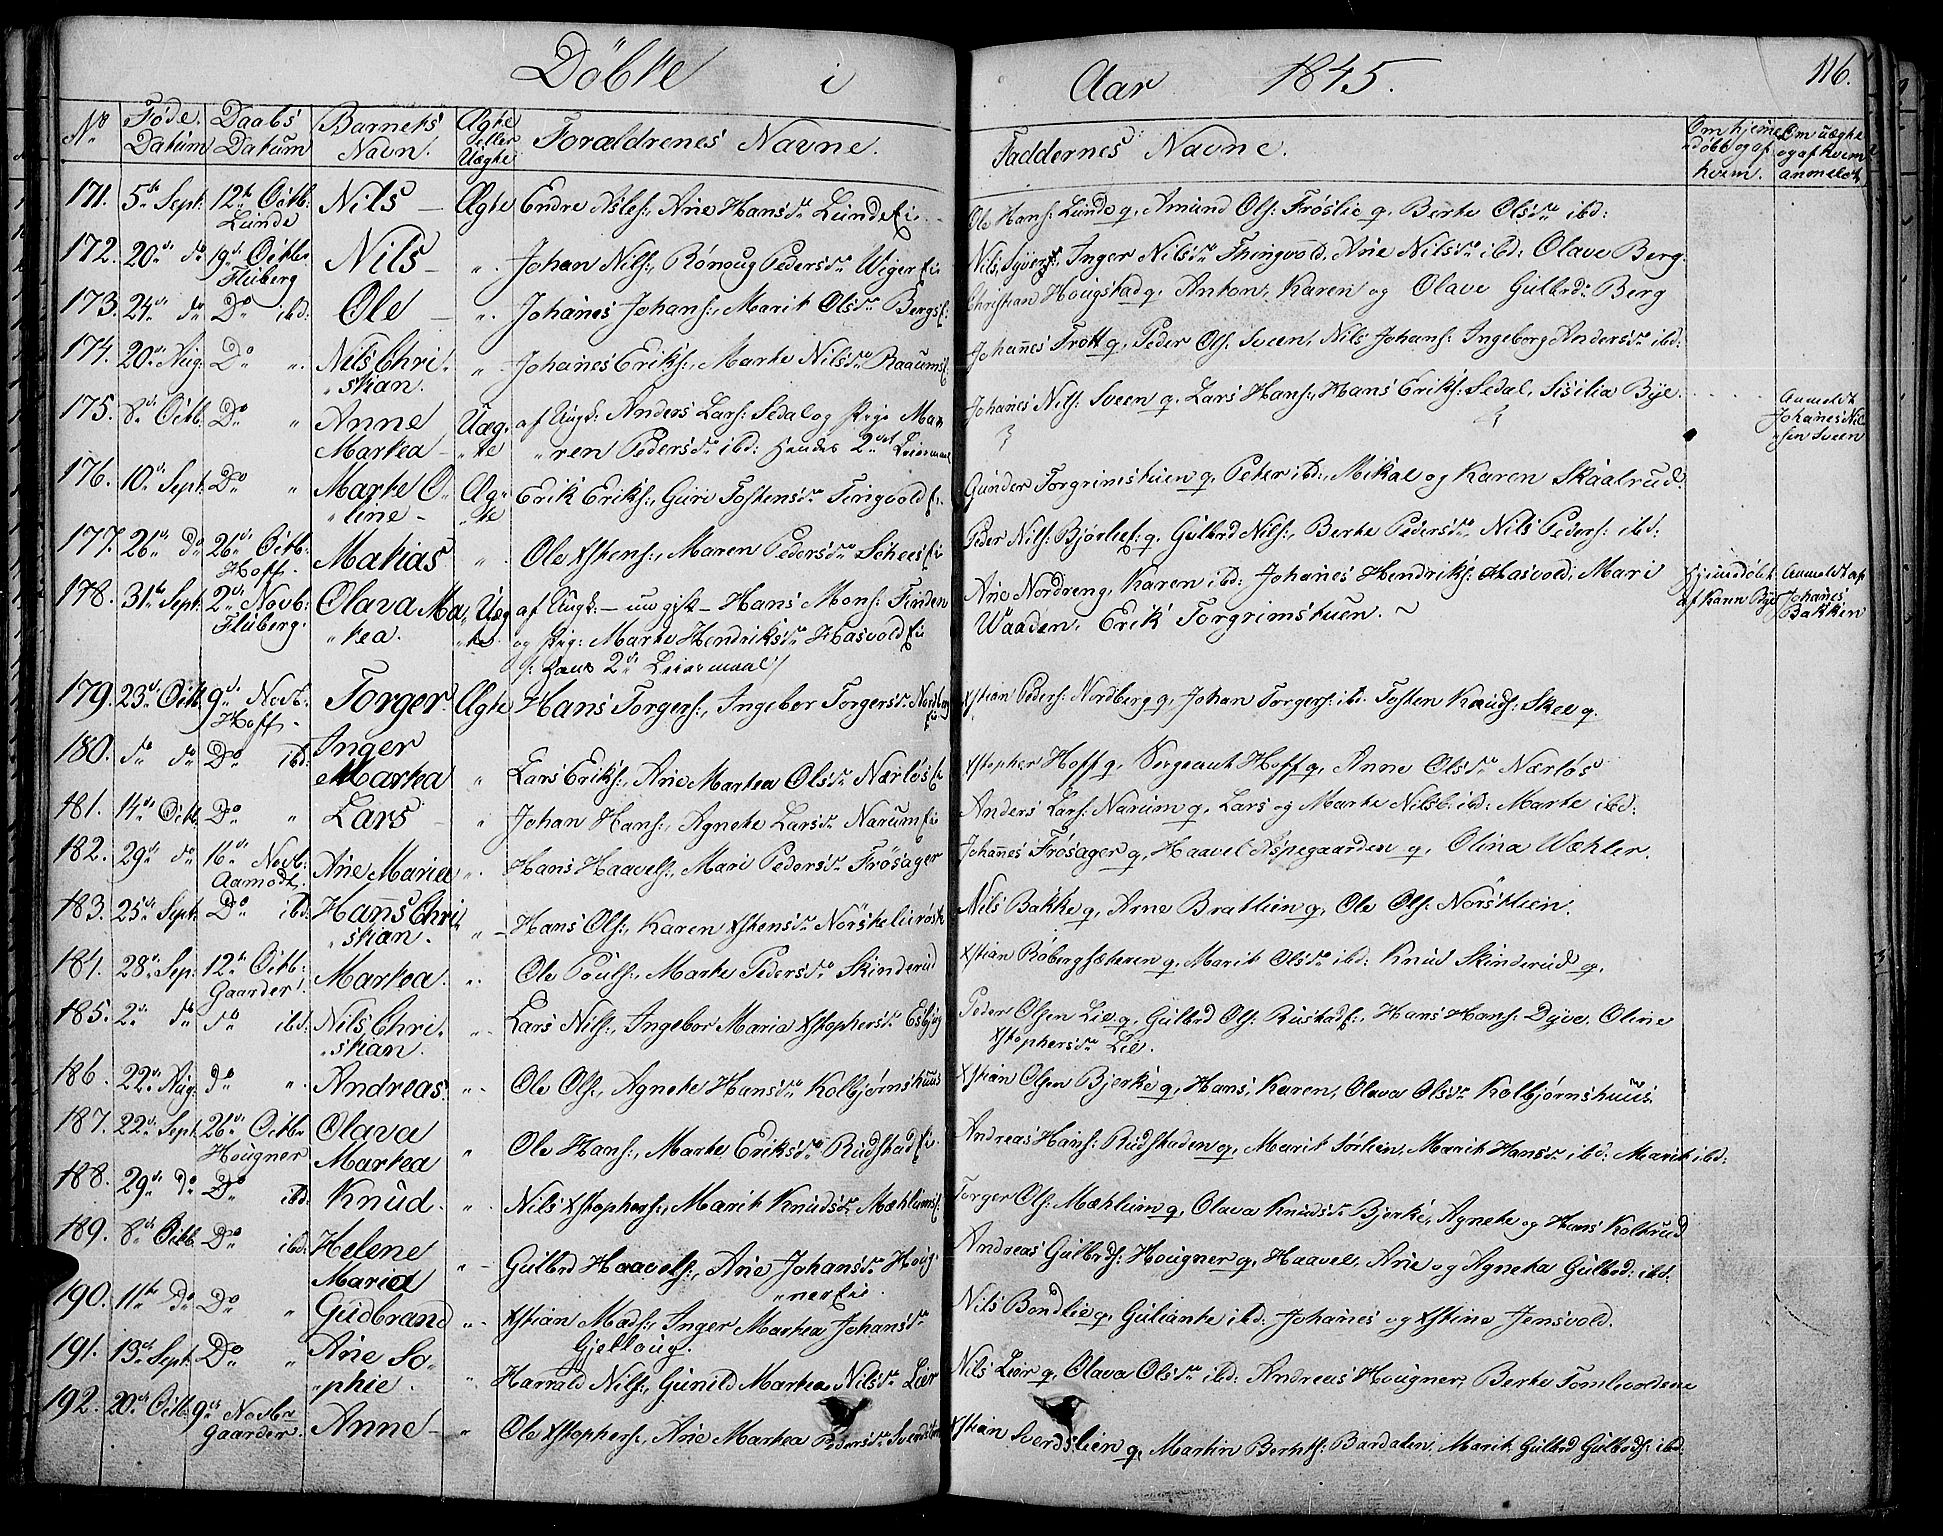 Döbte i Aar 1845. 116.
No Føde. Datum Daabs Datum Barnets Navn. Ægte eller Uægte Forældrenes Navne. Faddernes Navne. Om hjemedöbt og af hvem. Om uægte og af hvem anmeldt
171. 5te Sept: 12te Octb: Lunde Nils Ægte Endre Asles:, Arie Hansdr Lunde Ole Hans: Lunde g, Amund Ols: Fröslie g, Berte Olsdr ibd:
172. 20de do 19de Octbr Fluberg Nils " Johan Nils:, Rönoug Pedersdr Wiger Nils Syvers: Inger Nilsdr Thingvold, Arie Nilsdr ibd: Olave Berg
173. 24de do Do ibd: Ole " Johanes Johans:, Marit Olsdr Bergs Christian Hougstad g, Anton, Karen og Olave Gulbrds: Berg
174. 20de Aug: Do " Nils Chri„stian. " Johanes Eriks:, Marte Nilsdr Raaums Johannes Frött g, Peder Ols: Sveen, Nils Johans: Ingeborg Andersdr ibd:
175. 8de Octb. Do " Anne Martea Uæg„te af Ungk: Anders Lars: Sedal og Pige Maren Pedersdr ibd: hendes 2det Leiermaal Johanes Nils: Sveen g, Lars Hans:, Hans Eriks: Sedal, Sisilia Bye. Anmeldt Johanes Nilsen Sveen
176. 10de Sept: Do " Marte O„line Æg„te Erik Eriks:, Guri Tostensdr Tingvold Gunder Torgrimstuen g, Peter ibd:, Mikal og Karen Skaalrud.
177. 26de do 26de Octb: Hoff. Matias " Ole Xstens:, Maren Pedersdr Schee Peder Nils: Bjørlie g, Gulbrd Nils:, Berte Pedersdr, Nils Peders: ibd:
178. 31te Sept: 2de Novb: Fluberg. Olava Ma„tea. Uæg„te af Ungk: – ung gift – Hans Mons: Finden og Pig: Marte Hendriksdr Hasvold /: hans 2det Leiermaal / Arie Nordreng, Karen ibd: Johanes Hendriks: Hasvold, Mari Waaden, Erik Torgrimstuen. Hjemdöbt af Karen Bye Anmeldt af Johanes Bakken
179. 23de Octb. 9de Novb: Hoff Torger Ægte Hans Torgers:, Ingebor Torgersdr Nordberg Xstian Peders: Nordberg g, Johan Torgers: ibd. Tosten Knuds: Skee g.
180. do do Do ibd: Inger Martea " Lars Eriks:, Arie Martea Olsdr Nærlös Xstopher Hoff g, Sergeant Hoff g, Anne Olsdr Nærlös
181. 14de Octb. Do " Lars " Johan Hans:, Agnete Larsdr Narum Anders Lars: Narum g, Lars og Marte Nils: ibd: Marte ibd:
182. 29de do 16de Novb: Aamodt. Arie Maria " Hans Haavels:, Mari Pedersdr Frösager Johannes Frösager g, Haavel Aspegaarden g, Olina Wæhler.
183. 25de Sept: Do ibd: Hanns Chri„stian. " Hans Ols:, Karen Xstensdr Nörstelien Nils Bakke g, Arne Bratlien g, Ole Ols: Nörstlien.
184. 28de Sep: 12te Octb: Gaarder. Martea. " Ole Pouls:, Marte Pedersdr Skinderud Xstian Röbergsæteren g, Marit Olsdr ibd: Knud Skinderud g.
185. 2de do do ibd: Nils Chri„stian. " Lars Nils:, Ingebor Maria Xstophersdr Esbjug Peder Olsen Lie g, Gulbrd Ols: Rustad:, Hans Hans: Dyve, Oline Xstophersdr Lie.
186. 22de Aug: do " Andreas. " Ole Ols:, Agnete Hansdr Kolbjørnshuus Xstian Olsen Bjerke g, Hans, Karen, Olava Olsdr Kolbjørnshuus.
187. 22de Sept. 26de Octbr Hougner Olava Martea " Ole Hans:, Marte Eriksdr Rudstad Andreas Hans: Rudstaden g, Marit Sörlien, Marit Hansdr ibd: Marit ibd:
188. 29de do Do ibd: Knud. " Nils Xstophers:, Marit Knudsdr Mæhlum Torger Ols: Mæhlum g, Olava Knudsdr Bjerke, Agnete og Hans Kolkrud
189. 8de Octb. Do ibd: Helene Maria " Gulbrd Haavels:, Arie Johansdr Hougner Andreas Gulbrds: Hougner g, Haavel, Arie og Agneta Gulbrd: ibd:
190. 11te do Do " Gudbrand " Xstian Mads:, Inger Martea Johansdr Gjelloug. Nils Bondlie g, Guliante ibd: Johanes og Xstine Jensvold.
191. 13de Sept. Do " Arie So„phie. " Harrald Nils:, Gunild Martea Nilsdr Lier Nils Lier g, Olava Olsdr ibd: Andreas Hougner, Berte Tomlevoldene
192. 20de Octb. 9de Novbr Gaarder. Anne " Ole Xstophers:, Arie Martea Pedersdr Xstian Sverdslien g, Martin Bernts: Bardalen, Marit Gulbrd Gulbrds: ibd.